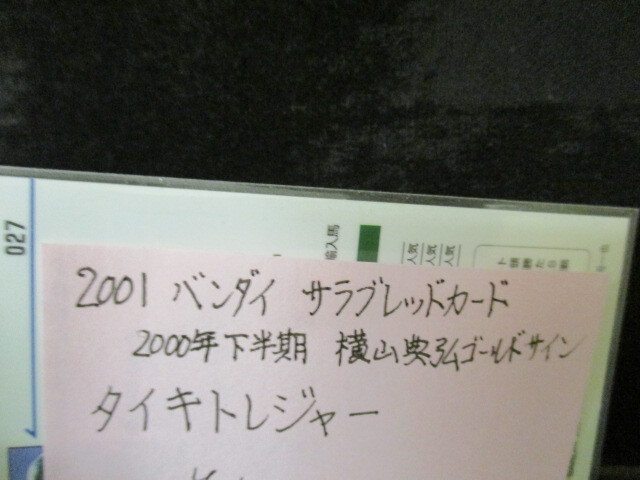 027
輸入馬
人気
人気
人気
2001 バンダイ サラブレッドカード
2000年下半期 横山典弘ゴールドサイン
タイキトレジャー